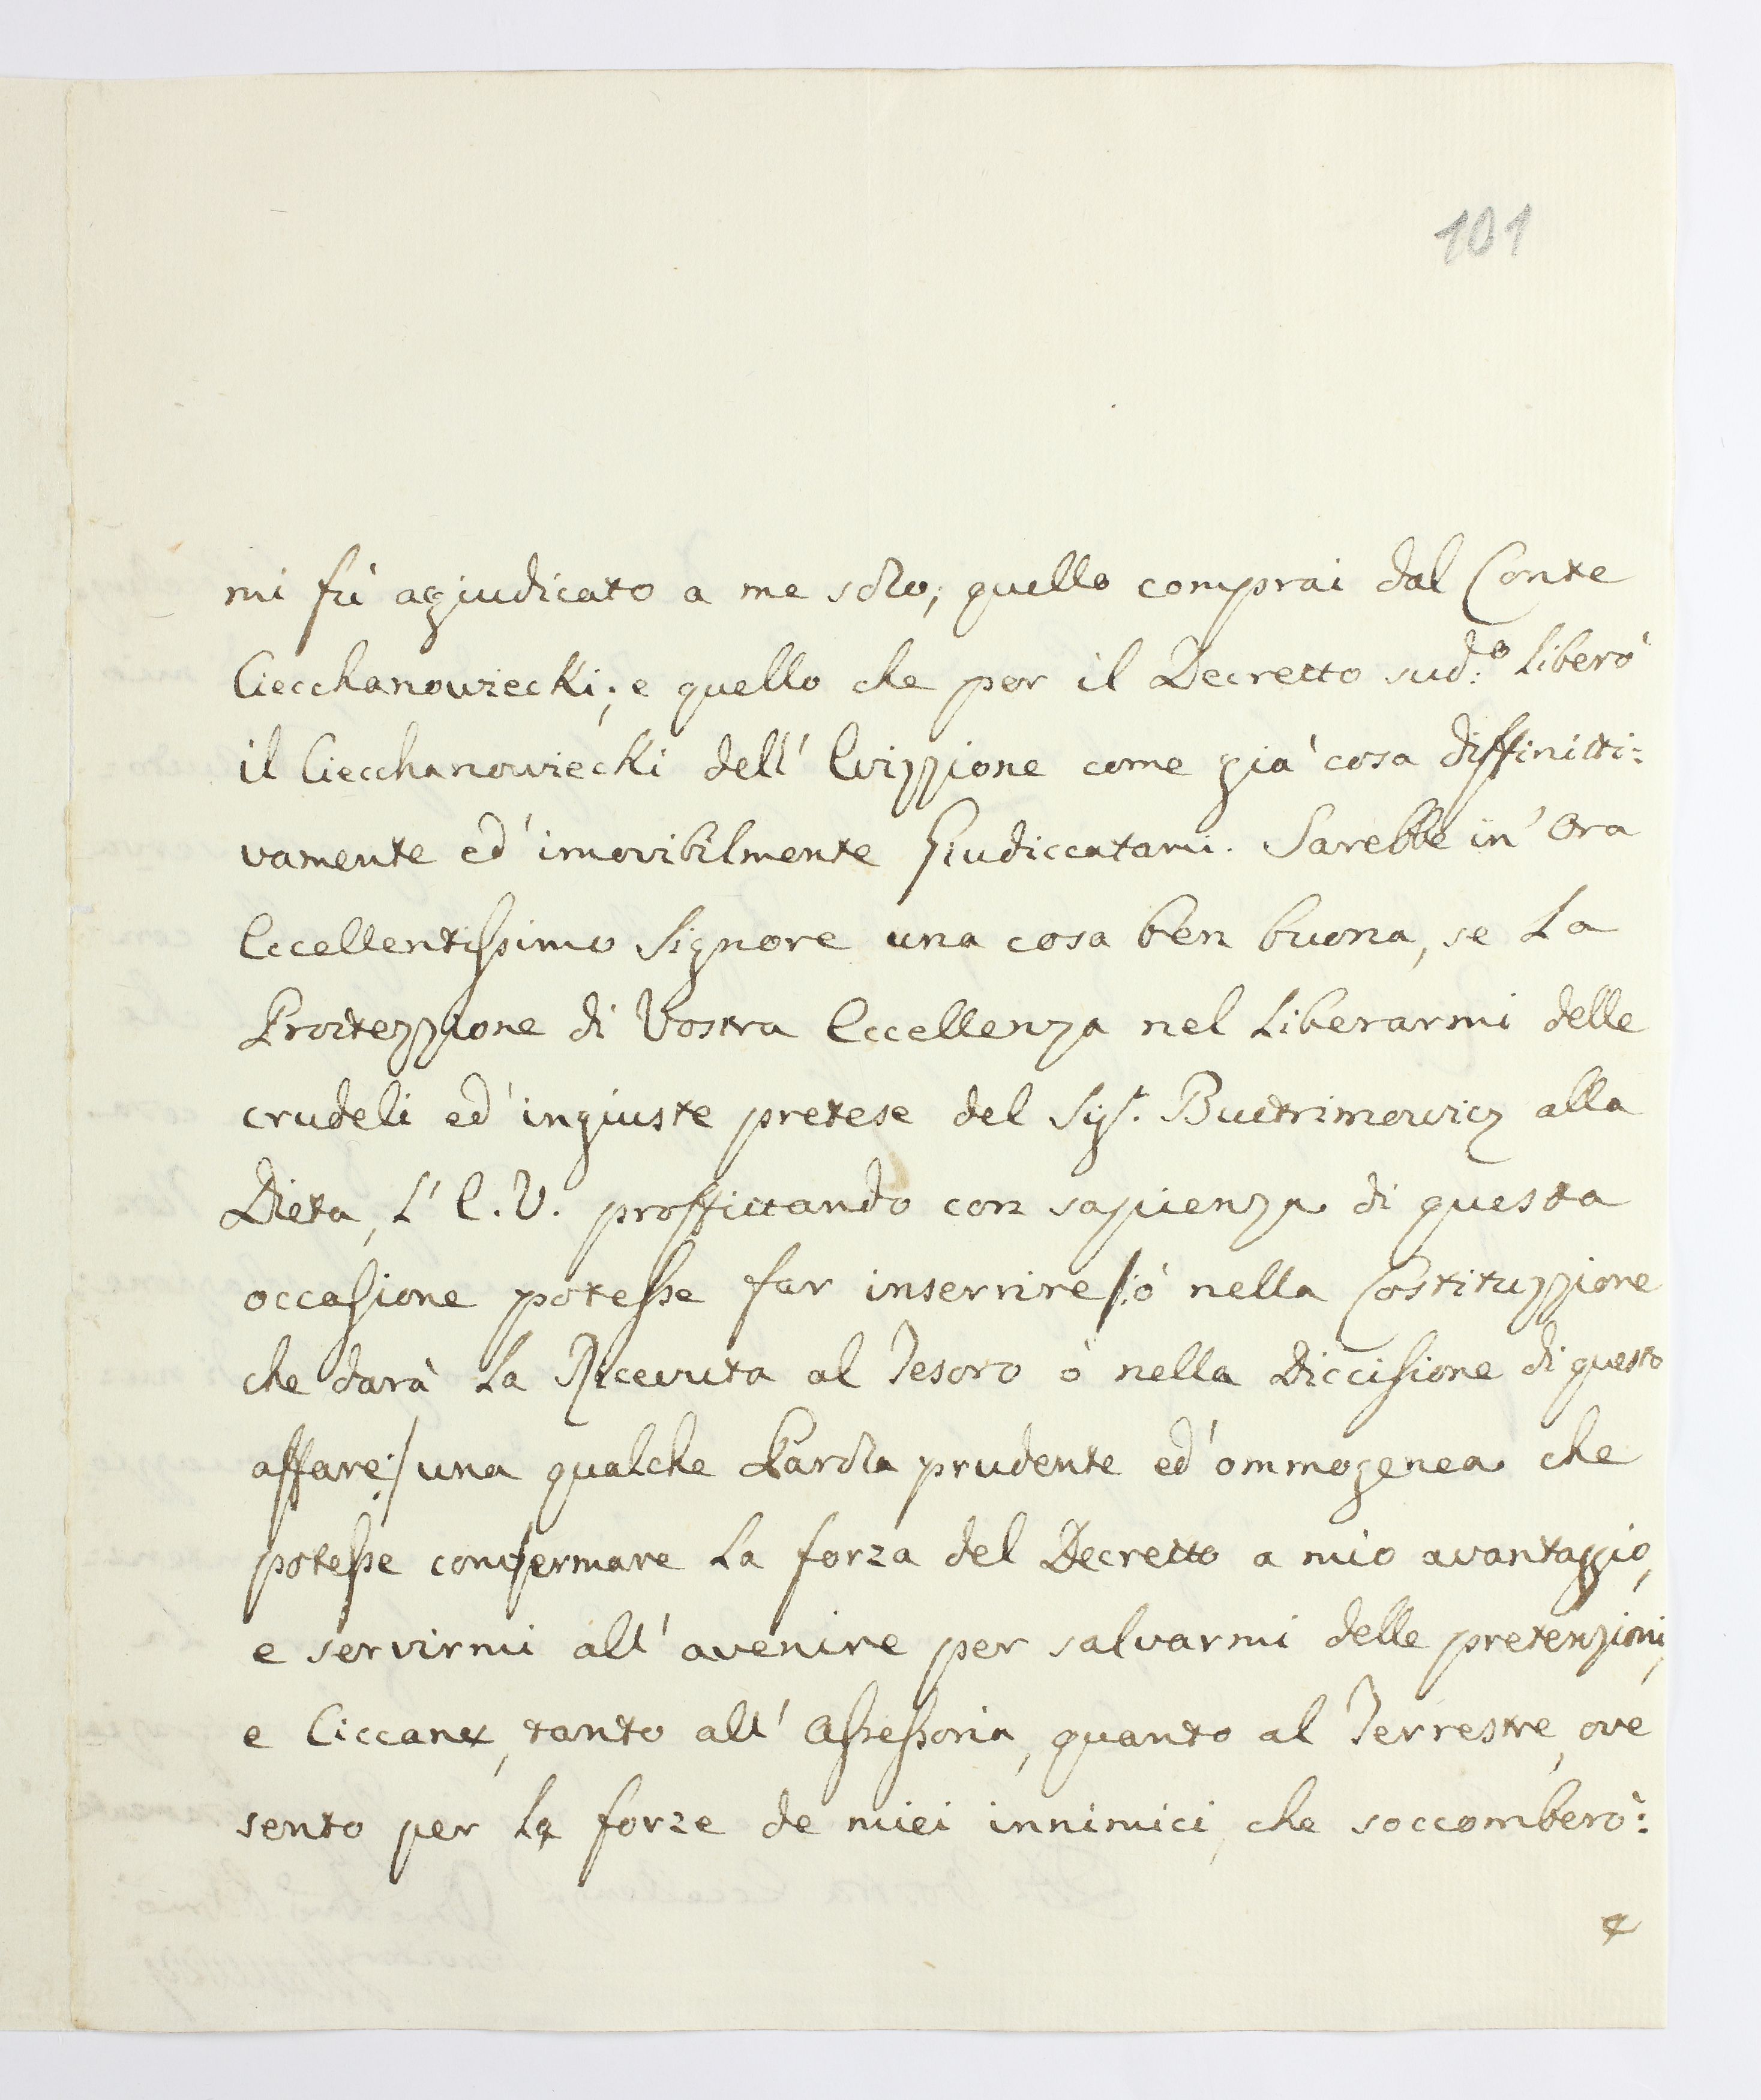 101
mi fù agiudicato a me solo; quello comprai dal Conte
Ciecchanowiecki; e quello che per il Decretto sud:º Liberò
il Ciecchanowiecki dell' Evizzione come già cosa diffinitti:
vamente ed' imovibilmente Giudiccatami. Sarebbe in' Ora
Eccellentissimo Signore una cosa ben buona, se La
Prottezzione di Vostra Eccellenza nel Liberarmi delle
crudeli ed' ingiuste pretese del Sigr. Buttrimowicz alla
Dieta, L' E. V. proffittando con sapienza di questa
occasione potesse far inserrire /:ò nella Costituzzione
che darà La Ricevuta al Tesoro ò nella Diccisione di questo
affare:/ una qualche Parola prudente ed' ommogenea che
potesse confermare La forza del Decretto a mio avantaggio,
e servirmi all' avenire per salvarmi delle pretenzioni,
e Ciccane, tanto all' Assessoria, quanto al Terrestre, ove
sento per Le forze de miei innimici, che soccomberò: